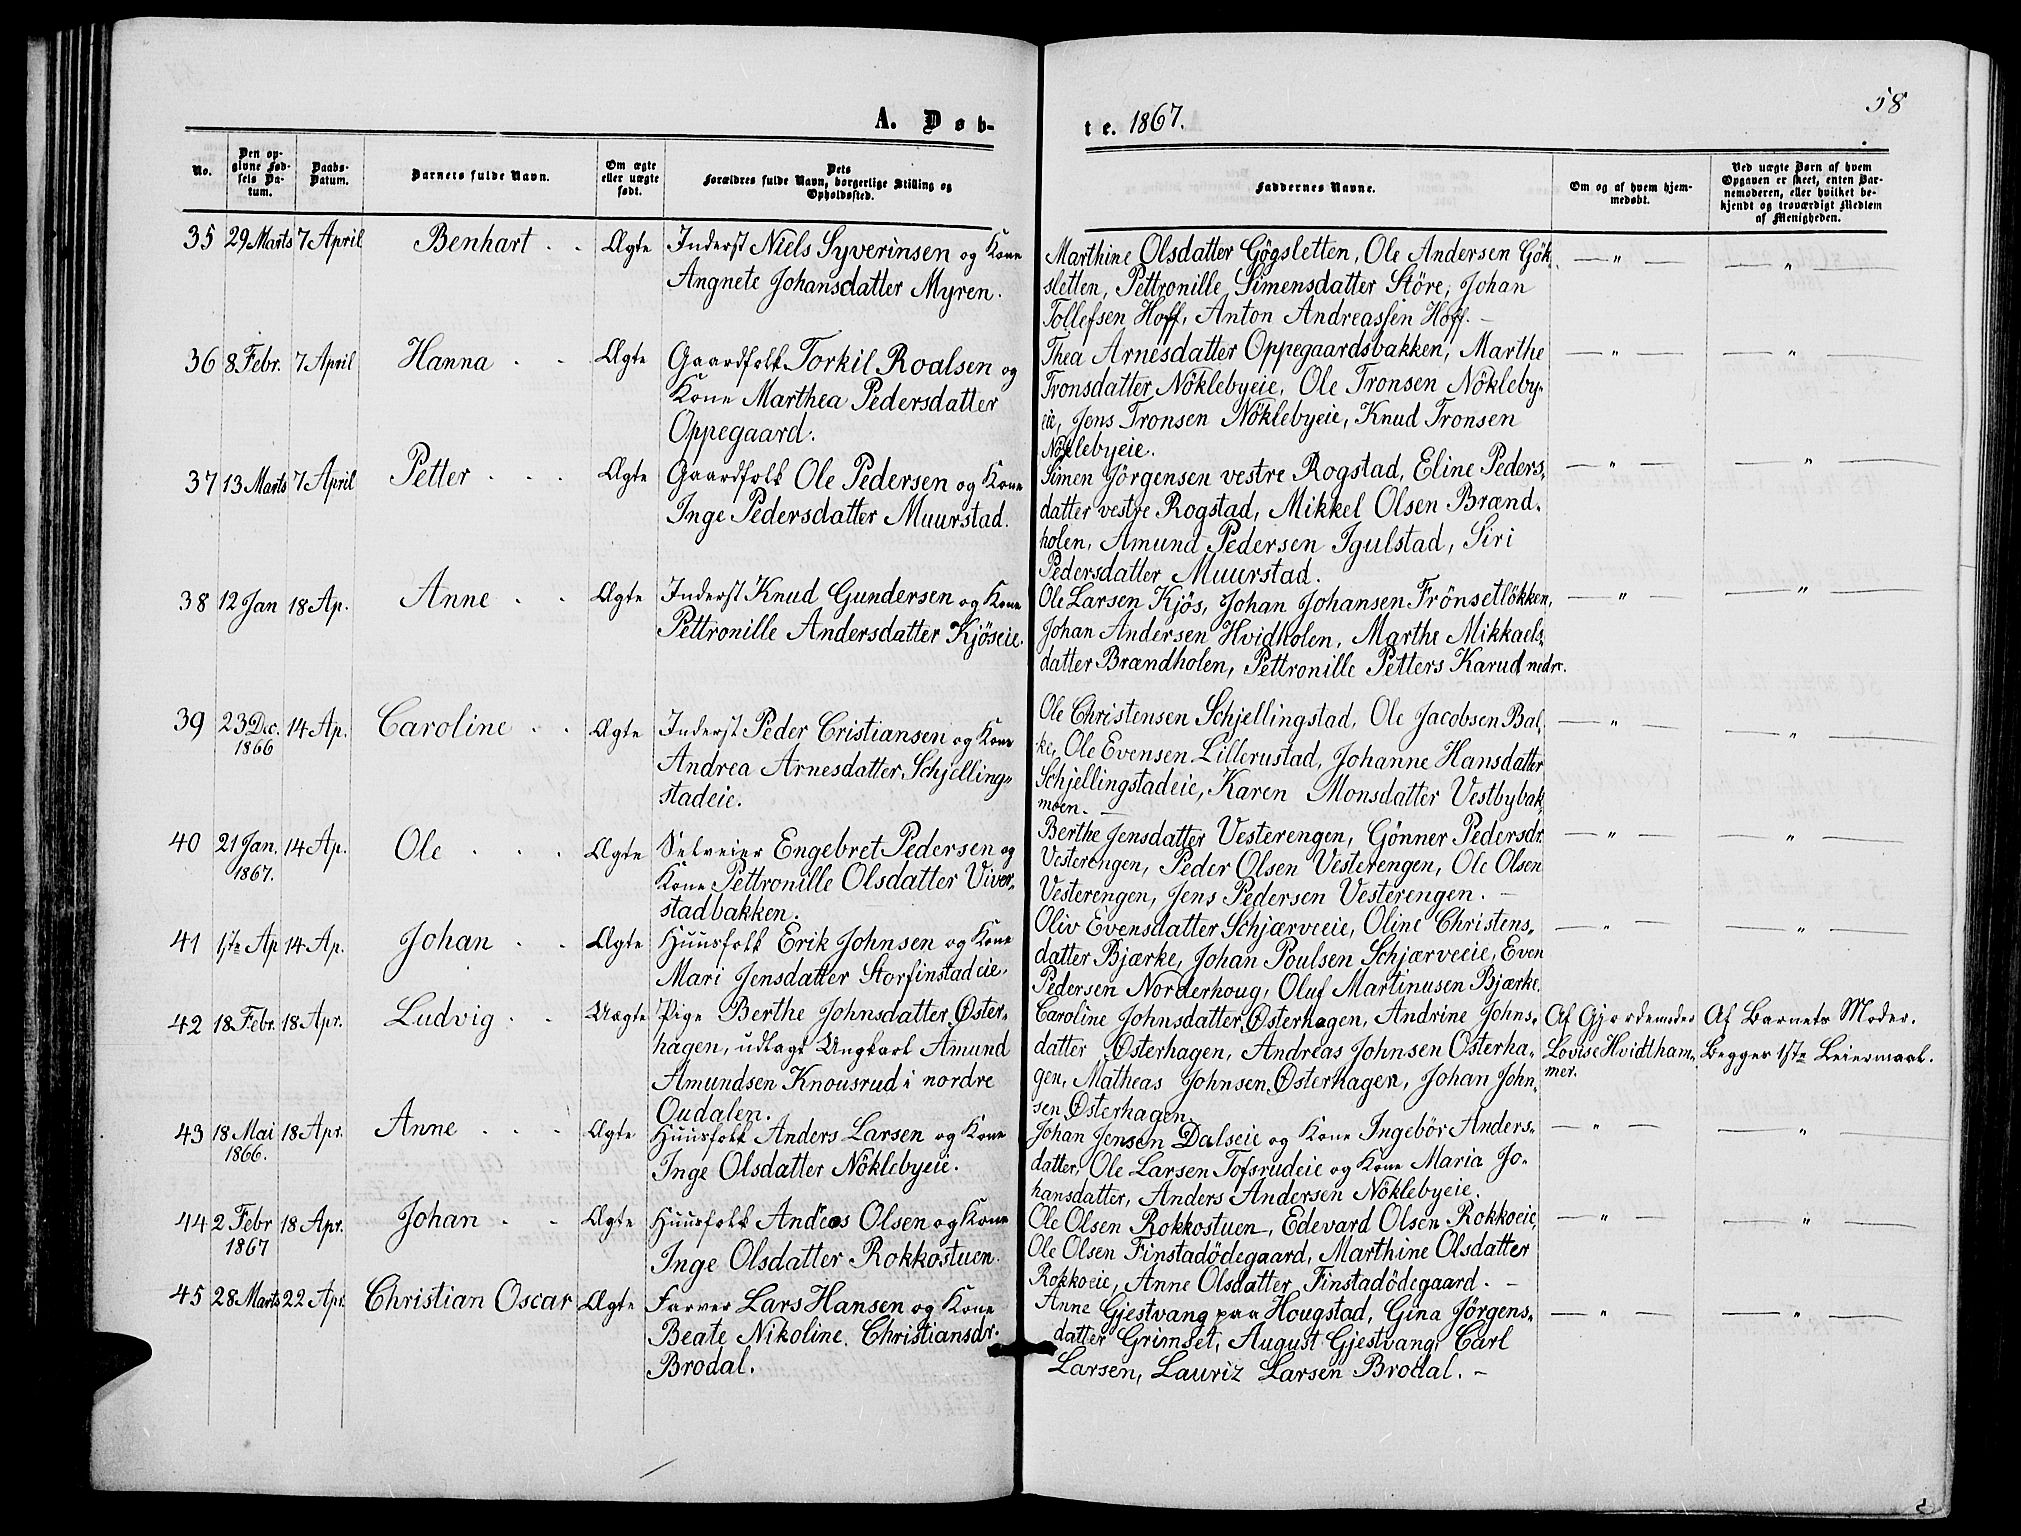 58
A. Døb-
te. 1867.
No.
Den op-
givne Fød-
sels Da-
tum.
Daabs-
Datum.
Barnets fulde Navn.
Om ægte
eller uægte
født.
Dets
Forældres fulde Navn, borgerlige Stilling og
Opholdssted.
Faddernes Navne.
Om og af hvem hjem-
medøbt.
Ved uægte Børn af hvem
Opgaven er skeet, enten Bar-
nemoderen, eller hvilket be-
kjendt og troværdigt Medlem
af Menigheden.
35 29 Marts 7 April Benhart Ægte Inderst Niels Syverinsen og Kone
Angnete Johansdatter Myren.
Marthine Olsdatter Gögsletten, Ole Andersen Gök-
sletten, Pettronille Simensdatter Störe, Johan
Tollefsen Hoff, Anton Andreassen Hoff. —
— " — — " —
36 8 Febr. 7 April Hanna Ægte Gaardfolk Torkil Roalsen og
Kone Marthea Pedersdatter
Oppegaard.
Thea Arnesdatter Oppegaardsbakken, Marthe
Tronsdatter Nöklebyeie, Ole Tronsen Nökleby-
eie, Jens Tronsen Nöklebyeie, Knud Tronsen
Nöklebyeie.
— " — — " —
37 13 Marts 7 April Petter Ægte Gaardfolk Ole Pedersen og Kone
Inge Pedersdatter Muurstad.
Simen Jörgensen vestre Rogstad, Eline Peders-
datter vestre Rogstad, Mikkel Olsen Brænd-
holen, Amund Pedersen Igulstad, Siri
Pedersdatter Muurstad.
— " — — " —
38 12 Jan 18 Ap. Anne Ægte Inderst Knud Gundersen og Kone
Pettronille Andersdatter Kjöseie.
Ole Larsen Kjös, Johan Johansen Frönsetlökken,
Johan Andersen Hvidholen, Marthe Mikkaels-
datter Brændholen, Pettronille Petters Karud nedre.
— " — — " —
39 23 Dec. 14 Ap. Caroline Ægte Inderst Peder Cristiansen og Kone
1866
Andrea Arnesdatter Schjelling-
stadeie.
Ole Christensen Schjellingstad, Ole Jacobsen Bal-
ke, Ole Evensen Lillerustad, Johanne Hansdatter
Schjellingstadeie, Karen Monsdatter Vestbybak-
moen. —
— " — — " —
40 21 Jan. 14 Ap. Ole Ægte Selveier Engebret Pedersen og
1867.
Kone Pettronille Olsdatter Viver-
stadbakken.
Berthe Jensdatter Vesterengen, Gönner Pedersdr.
Vesterengen, Peder Olsen Vesterengen, Ole Olsen
Vesterengen, Jens Pedersen Vesterengen. —
— " — — " —
41 1ste Ap 14 Ap. Johan Ægte Huusfolk Erik Johnsen og Kone
Mari Jensdatter Storfinstadeie.
Oliv Evensdatter Schjærveeie, Oline Christens-
datter Bjærke, Johan Poulsen Schjærveeie, Even
Pedersen Norderhoug, Oluf Martinusen Bjærke.
— " — — " —
42 18 Febr. 18 Apr. Ludvig Uægte Pige Berthe Johnsdatter Øster-
hagen, udlagt Ungkarl Amund
Amundsen Knousrud i nordre
Oudalen.
Caroline Johnsdatter Østerhagen, Andrine Johns-
datter Østerhagen, Andreas Johnsen Østerha-
gen, Matheas Johnsen Østerhagen, Johan John-
sen Østerhagen.
Af Gjordemoder
Lovise Hvidtham-
mer.
Af Barnets Moder.
Begges 1ste Leiermaal.
43 18 Mai 18 Apr. Anne Ægte Huusfolk Anders Larsen og Kone
1866.
Inge Olsdatter Nöklebyeie.
Johan Jensen Dalseie og Kone Ingebör Anders-
datter, Ole Larsen Tofsrudeie og Kone Maria Jo-
hansdatter, Anders Andersen Nöklebyeie.
— " — — " —
44 2 Febr 18 Apr. Johan Ægte Huusfolk Andreas Olsen og Kone
1867
Inge Olsdatter Rokkostuen.
Ole Olsen Rokkostuen, Edevard Olsen Rokkoeie,
Ole Olsen Finstadödegaard, Marthine Olsdatter
Rokkoeie, Anne Olsdatter Finstadödegaard. —
— " — — " —
45 28 Marts 22 Apr. Christian Oscar Ægte Farver Lars Hansen og Kone
Beate Nikoline Christiansdr.
Brodal.
Anne Gjestvang paa Hougstad, Gina Jörgens-
datter Grimset, August Gjestvang, Carl
Larsen, Lauriz Larsen Brodal. —
— " — — " —